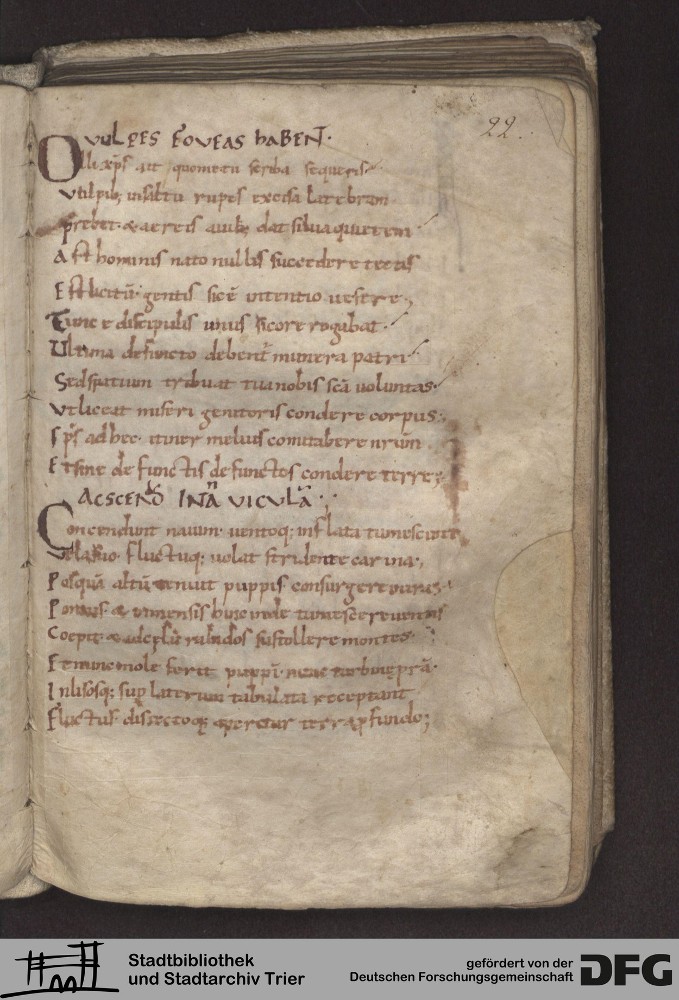 22.
VULPES FOVEAS HABENT.
Olli xps ait quo me tu scriba sequeris
Vulpib; in saltu rupes excisa latebram
Prebet. & aereis auib; dat silua quietem
Ast hominis nato nullis succedere tectis
Est licitu. gentis sic e intentio uestre,
Tunc e discipulis unus sic ore rogabat.
Ultima defuncto debent munera patri
Sed spatium tribuat tua nobis sca uoluntas.
Vt liceat miseri genitoris condere corpus.
Xps ad hec. itiner melius comitabere nrum
Et sine defunctis defunctos condere terre;
ASCENDO IN NAVICULA.
Concendunt nauim uentoq; inflata tumescunt
Vela suo. fluctuq; uolat stridente carina.
Posqua altu tenuit puppis consurgere
Pontus & inmensis hinc inde tumescere uentis
Coepit & ad celu rabidos sustollere montes.
Et nunc mole ferit puppi. nunc turbine pra.
Inlisosq; sup laterum tabulata receptant
Fluctus disiectoq; aperitur terra pfundo;
Stadtbibliothek
und Stadtarchiv Trier
gefördert von der
Deutschen Forschungsgemeinschaft
DFG